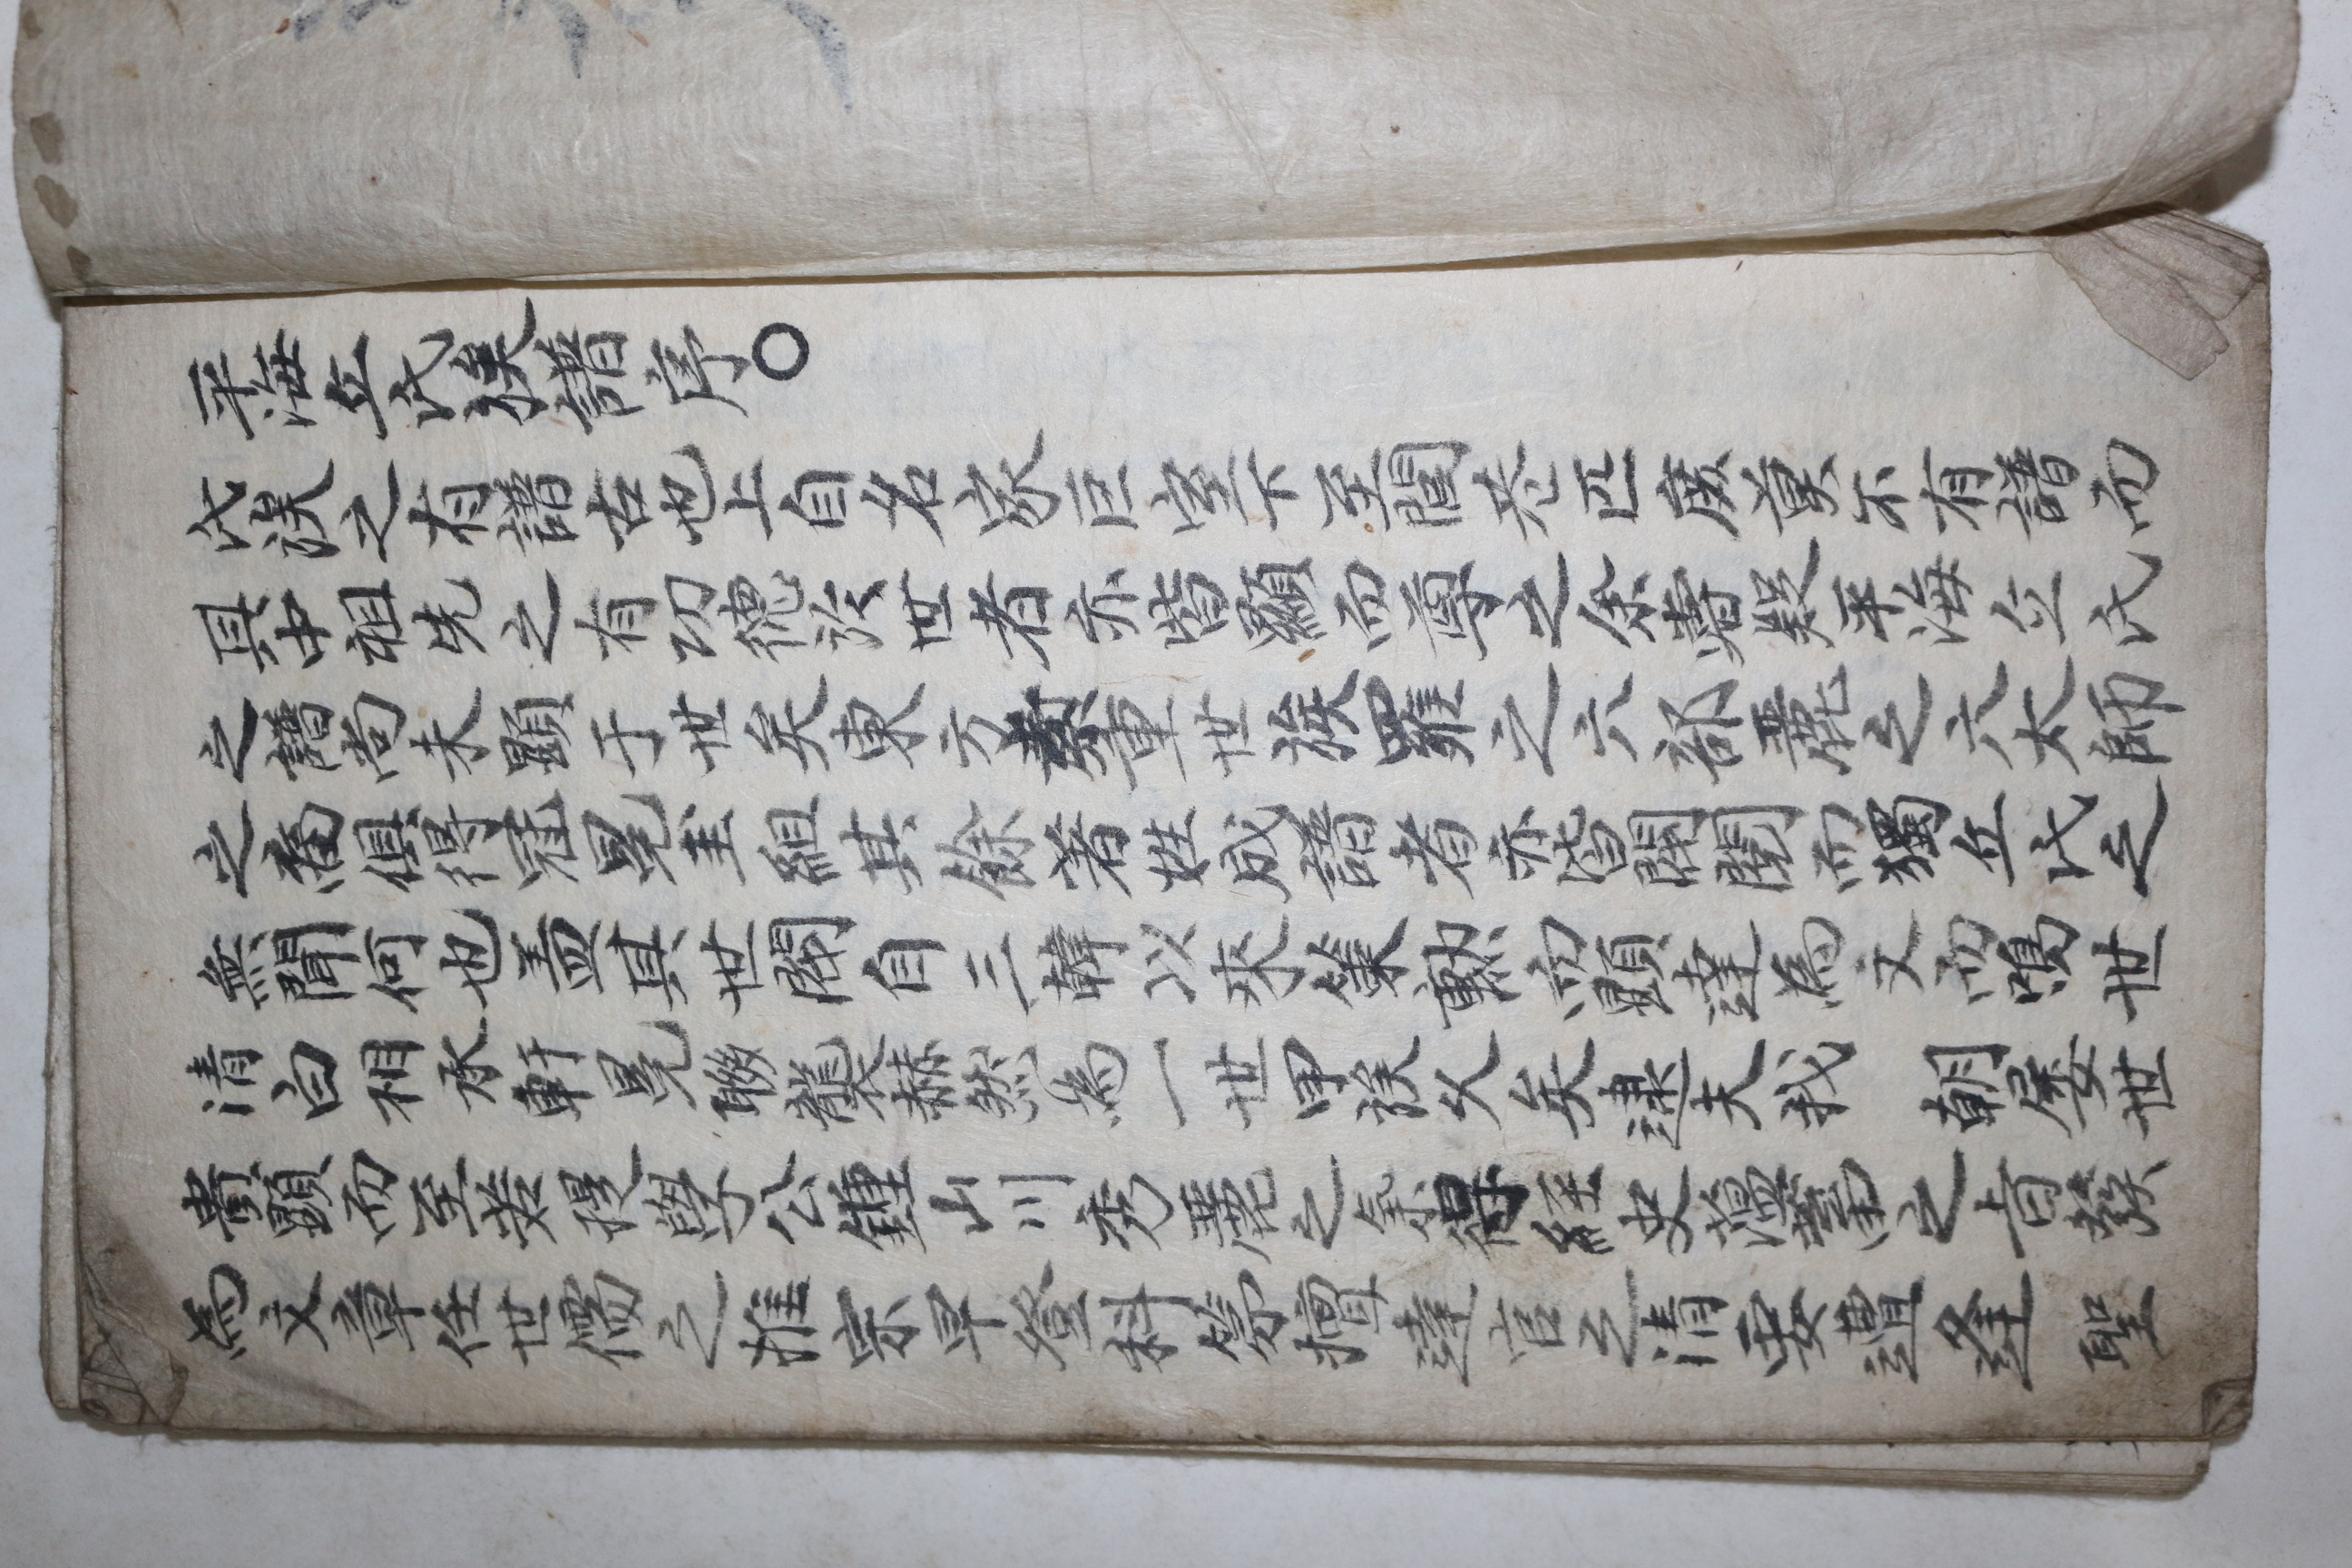 平海丘氏族譜序○
氏族之有譜古也上自名家巨室下至閭巷匹庶莫不有譜而
具中祖先之有功德於世者亦皆顯而尊之余嘗疑平海丘氏
之譜尚未顕于世矣東方素重世族羅之六部麗之六太師
之裔俱得冠冕圭組其餘著姓成譜者亦皆閥閱而獨丘氏之
無聞何也盖其世閥自三韓以來策勳而顕達為文而鳴世
清白相承軒冕聯襲赫然為一世甲族久矣逮夫我 朝屡世
貴顕而至若提學公鍾山川秀麗之氣得經史蘊蓄之旨發
為文章任世儒之推宗早登科第擅達官之清要遭逢 聖